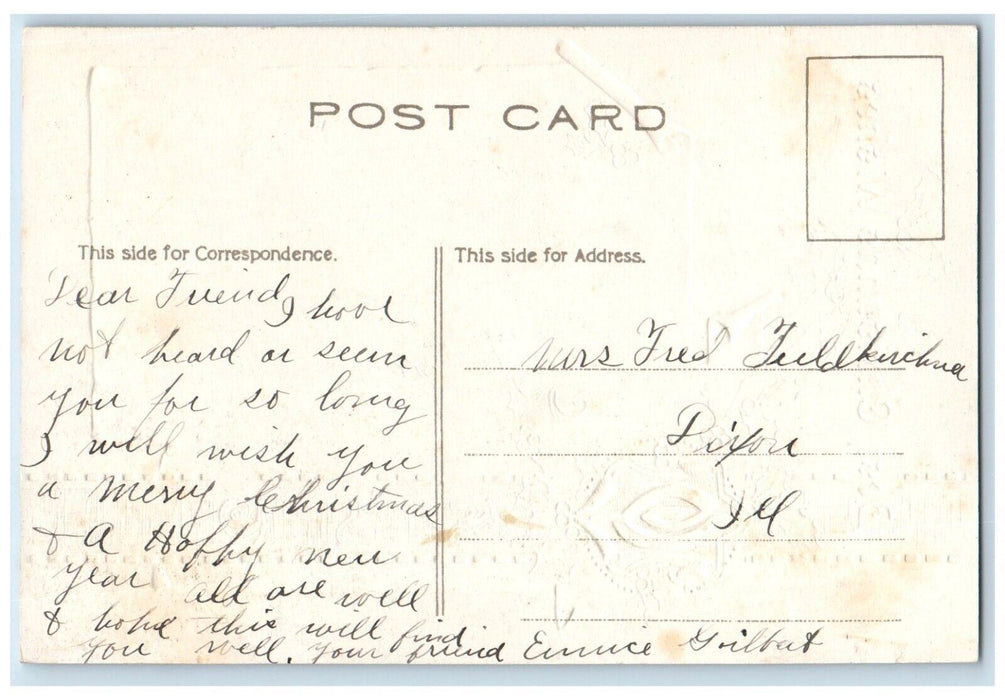 POST CARD
This side for Correspondence.
This side for Address.
Dear Friend I hove
not heard or seem
you for so long
I will wish you
a merry Christmas
& A Hoppy new
year all are well
& hope this will find
you well. your friend Eunice Gilbert
Mrs Fred Fuldkirchner
Dixon
Ill